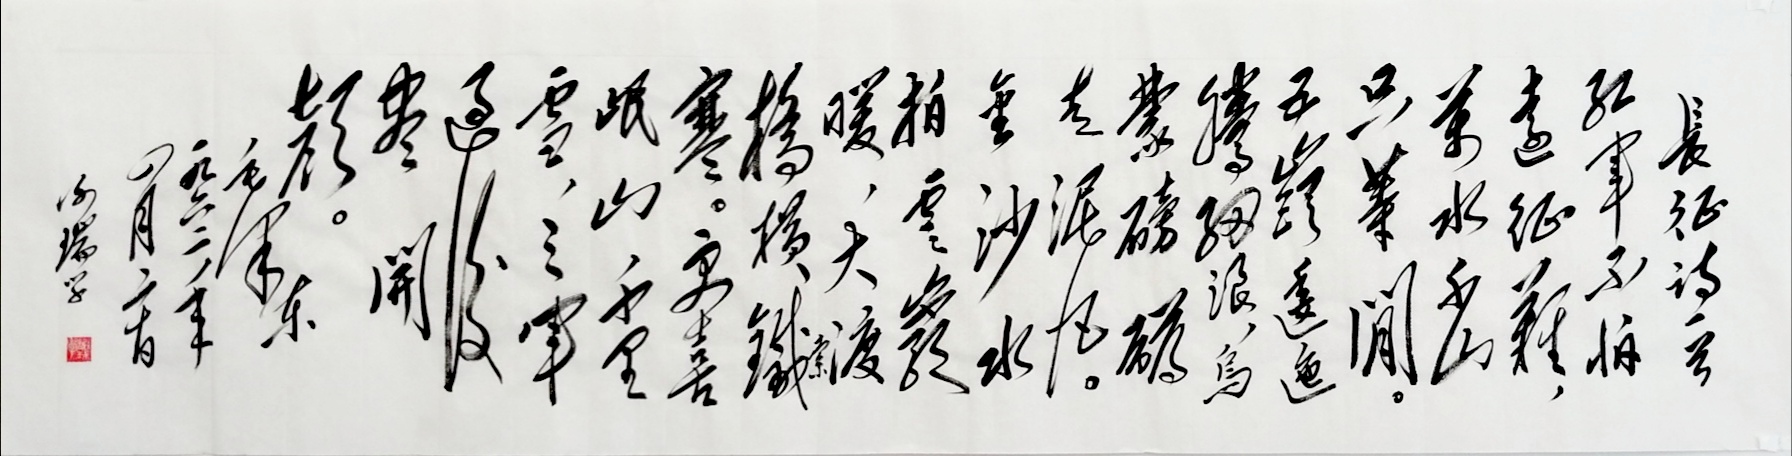 長征诗一首
红軍不怕
遠征難，
萬水千山
只等閒。
五嶺逶迤
騰细浪，烏
蒙磅礴
走泥丸。
金沙水
拍雲崖
暖，大渡
橋横鐵索
寒。更喜
岷山千里
雪，三軍
過後
盡開
颜。
毛澤東
一九六二年
四月二十日
瑞学